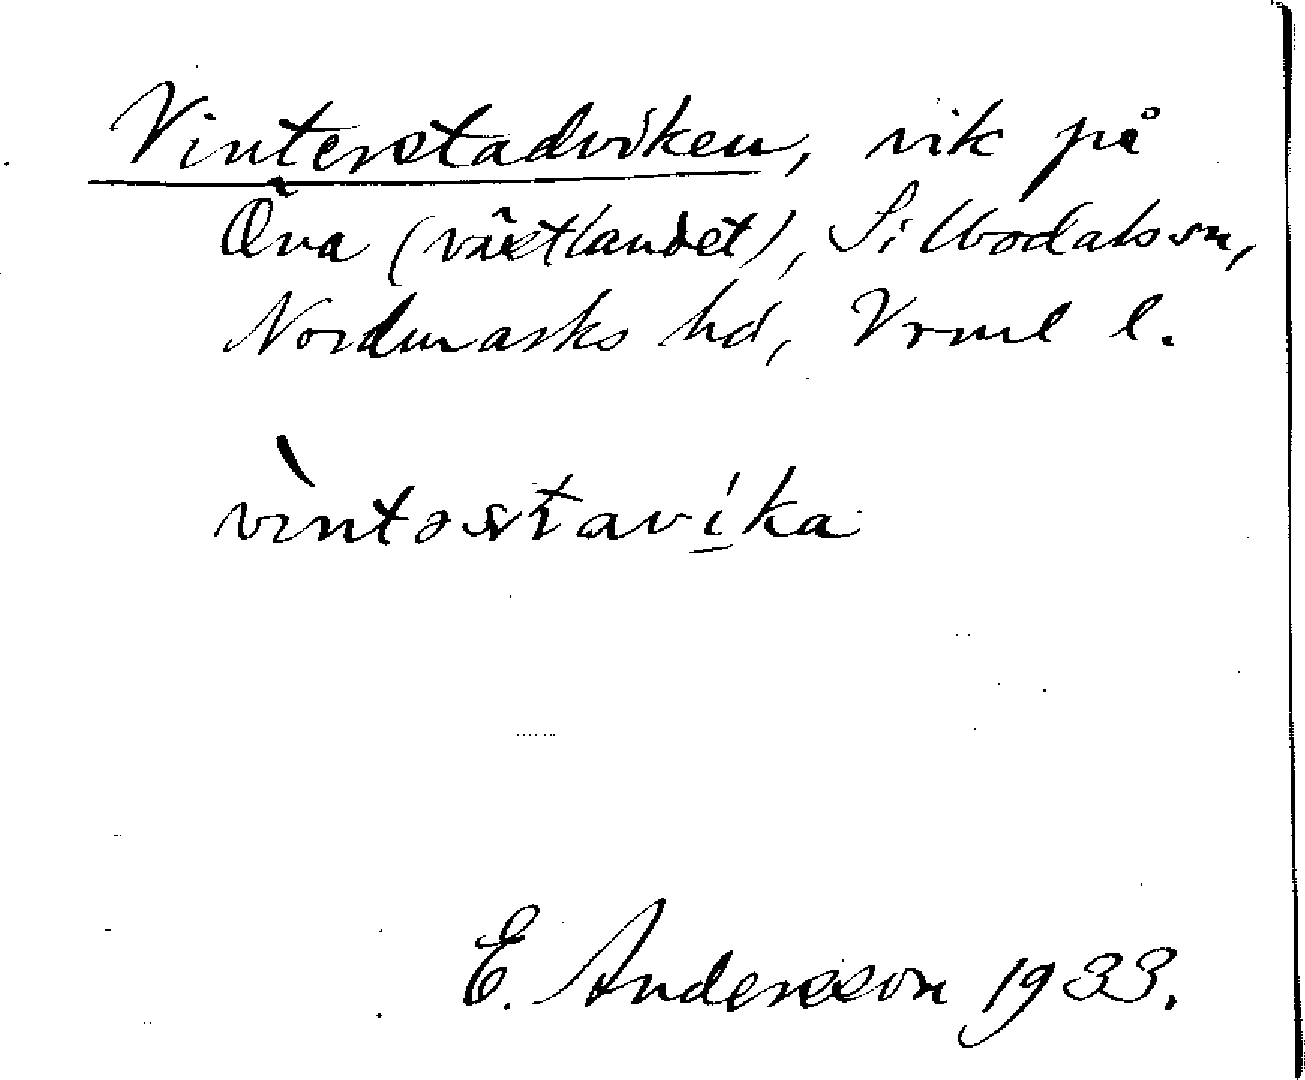 Vinterstadviken, vik på
Öna (västlandet), Silbodals sn,
Nordmarks hd, Vrml l.
vìntəstavíka
E. Andersson 1933.